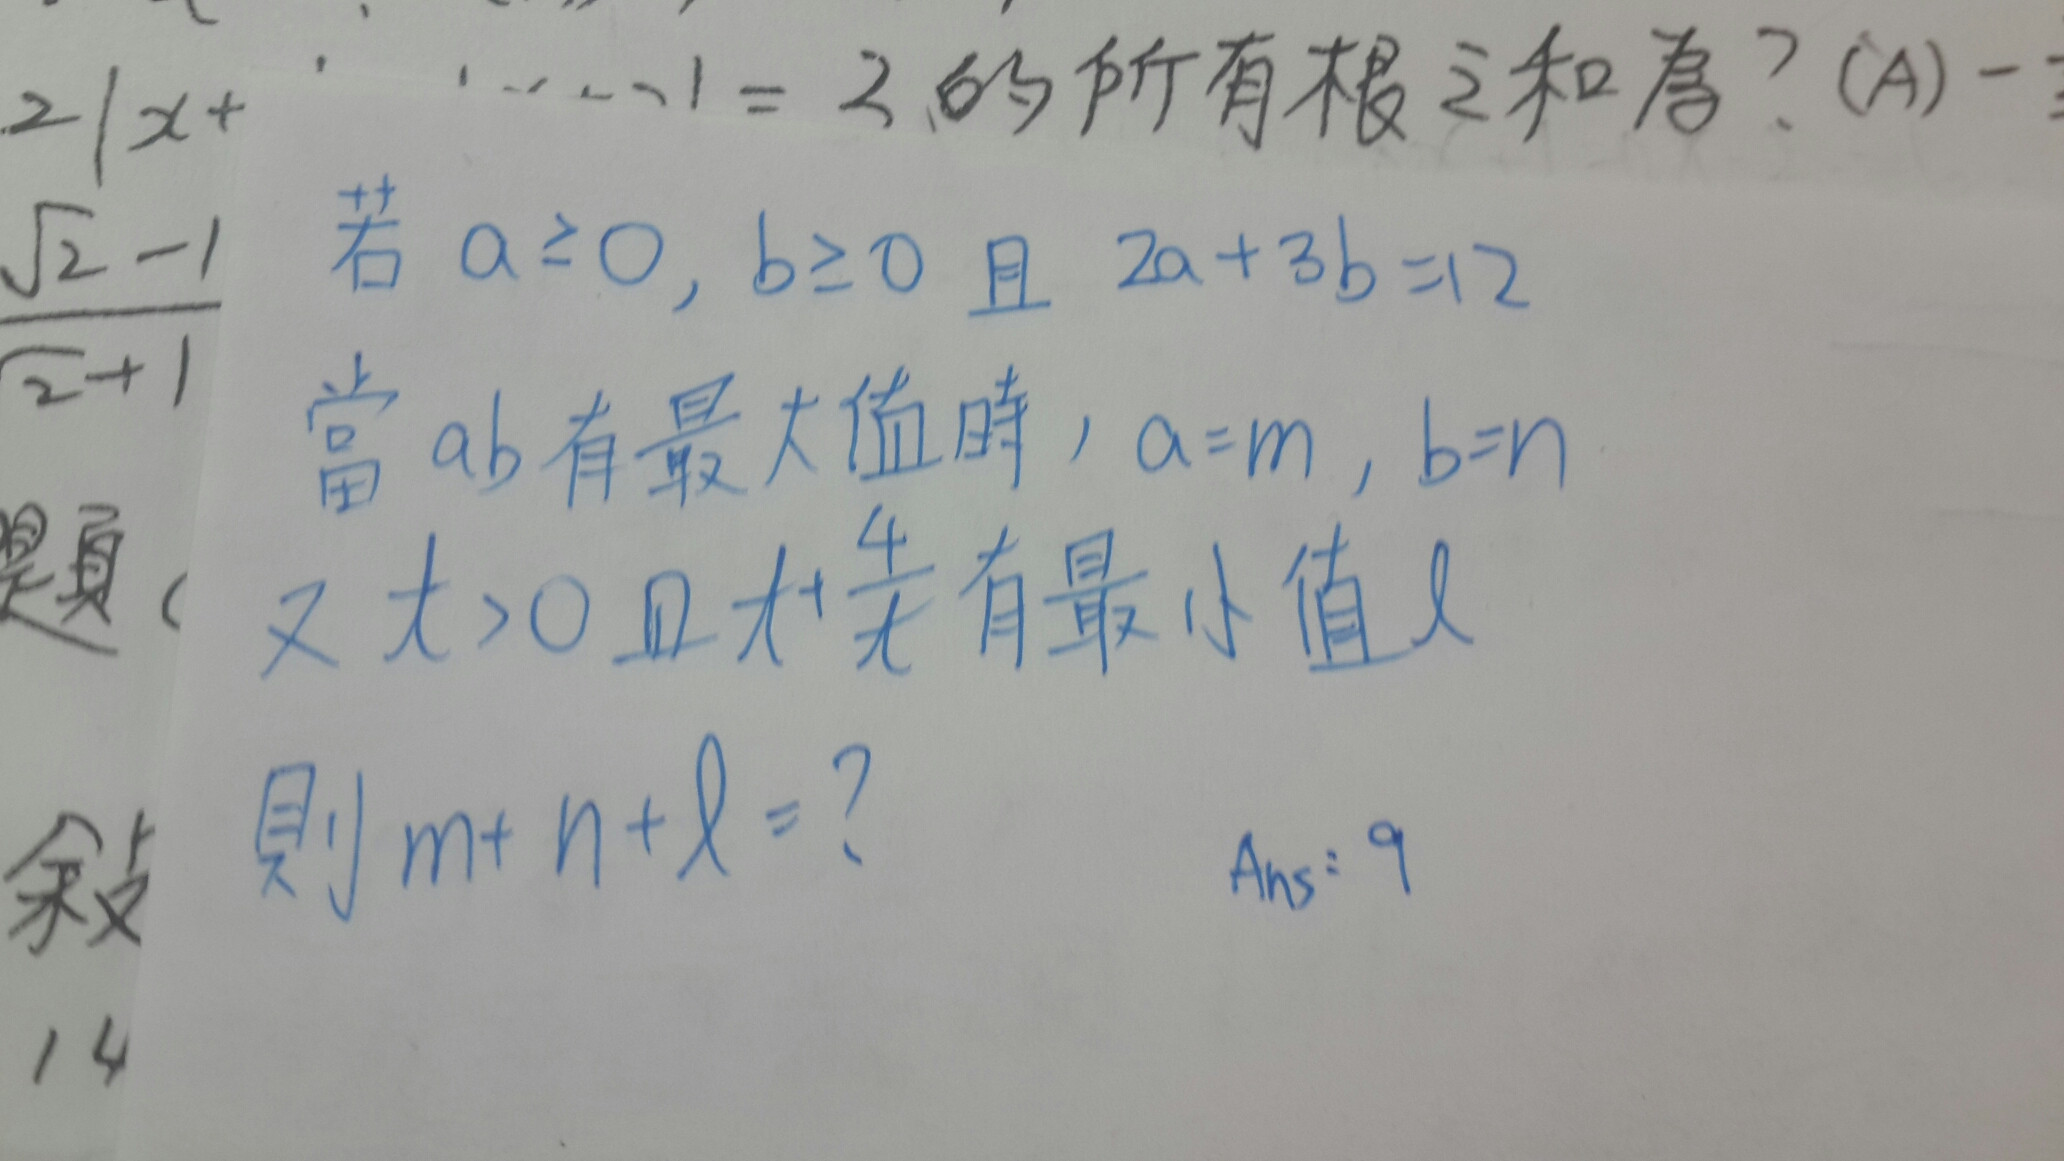 2|x+
= 2 的所有根之和為? (A) -
√2 - 1
√2 + 1
題 (
敘
14
若 a ≥ 0, b ≥ 0 且 2a + 3b = 12
當 ab 有最大值時, a = m, b = n
又 t > 0 且 t + 4/t 有最小值 l
則 m + n + l = ?
Ans: 9